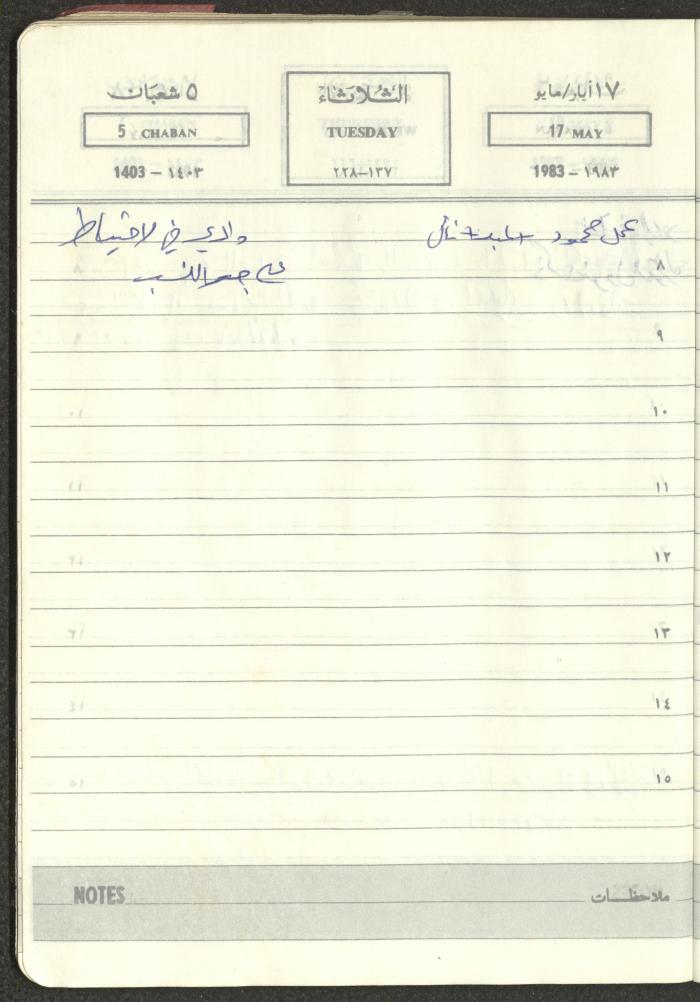 ١٧ أيار/مايو الثلاثاء ٥ شعبان
17 MAY TUESDAY 5 CHABAN
1983 – ١٩٨٣ ١٣٧–٢٢٨ 1403 – ١٤٠٣
عمل محمود وادي في الاحتياط
٨
٩
١٠
١١
١٢
١٣
١٤
١٥
NOTES ملاحظات